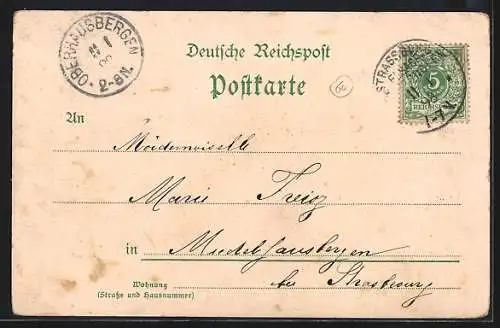 OBERHAUSBERGEN
2-8N.
Deutsche Reichspost
Postkarte
STRASSBURG
5
REICHSPOST
1-2N
An
Mademoiselle
Marie
in
bei Strassburg
Wohnung
(Straße und Hausnummer)